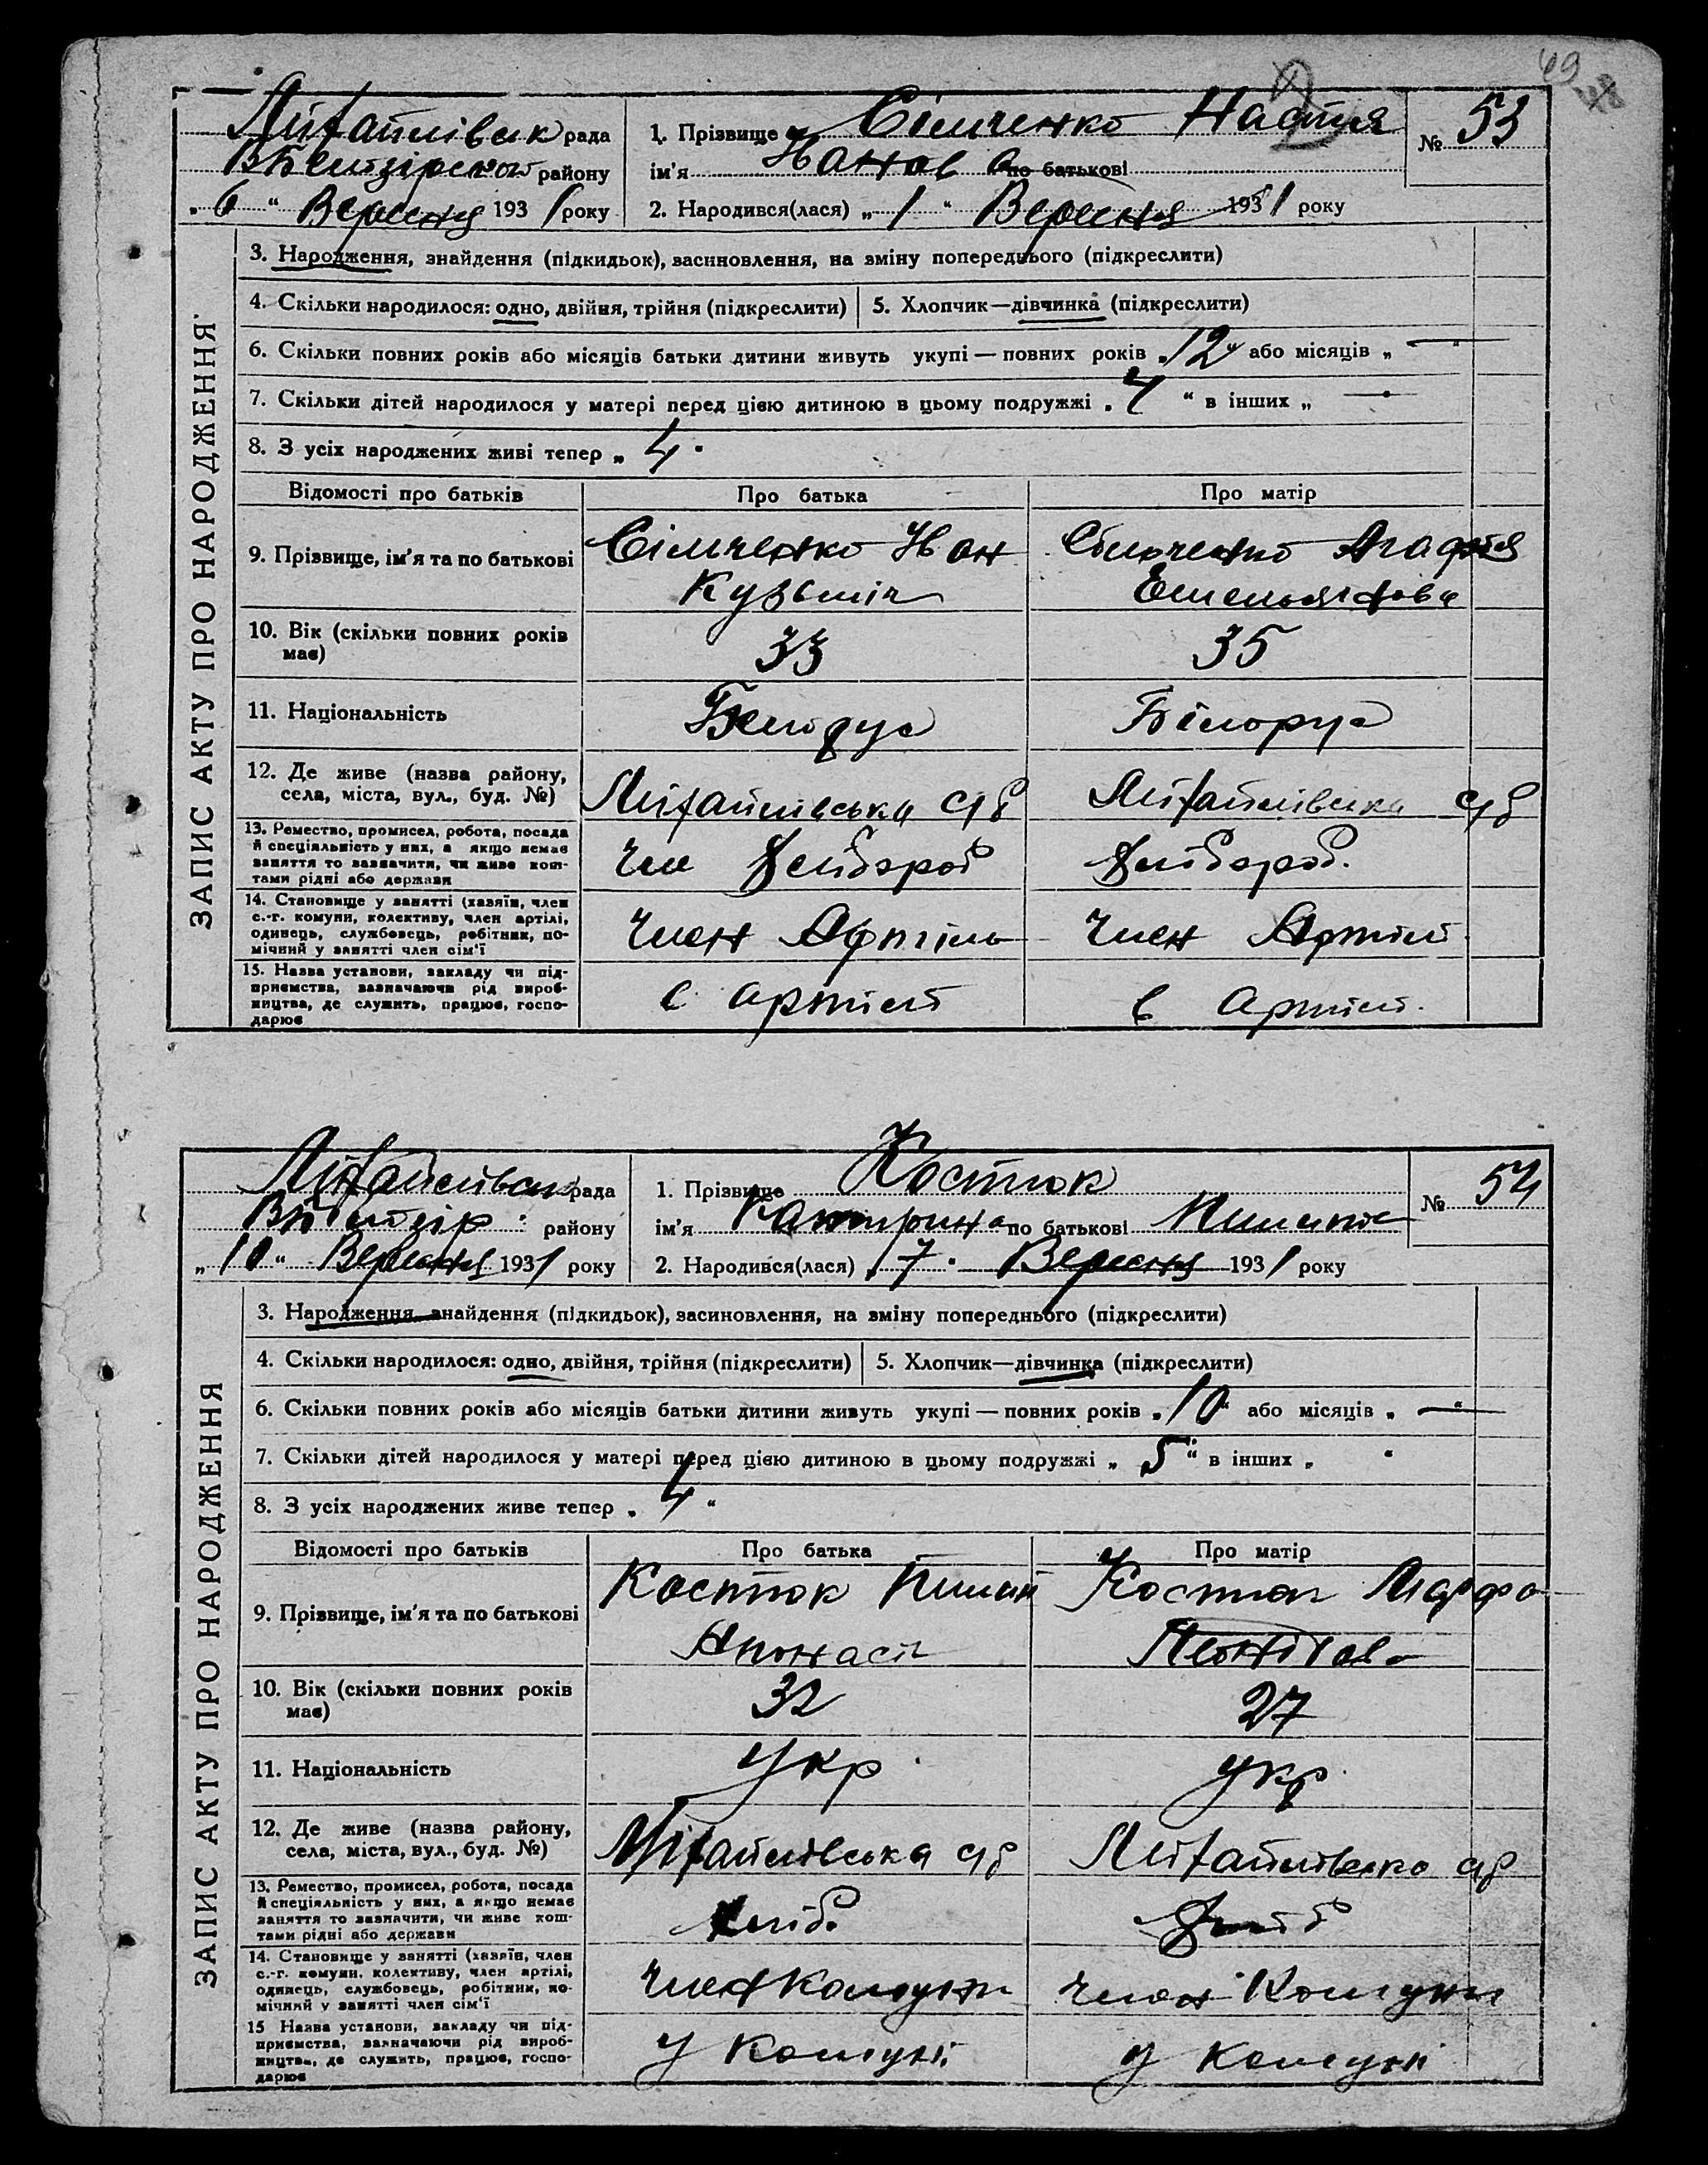 49
Михайлівськ рада
району
„6“ Вересня 1931 року
1. Прізвище Сімченко Настя
ім'я Иванов по батькові
№ 53
2. Народився(лася) „1“ Вересня 1931 року
ЗАПИС АКТУ ПРО НАРОДЖЕННЯ
3. Народження, знайдення (підкидьок), васиновлення, на зміну попереднього (підкреслити)
4. Скільки народилося: одно, двійня, трійня (підкреслити) 5. Хлопчик—дівчинка (підкреслити)
6. Скільки повних років або місяців батьки дитини живуть укупі — повних років „12“ або місяців „—“
7. Скільки дітей народилося у матері перед цією дитиною в цьому подружжі „4“ в інших „—“
8. З усіх народжених живі тепер „4“
Відомості про батьків Про батька Про матір
9. Прізвище, ім'я та по батькові
Сімченко Иван
Кузьміч
Сімченко Агафія
Емельянова
10. Вік (скільки повних років має) 33 35
11. Національність Білорус Білорус
12. Де живе (назва району, села, міста, вул., буд. №) Михайлівська с/г Михайлівська с/г
13. Ремество, промисел, робота, посада
й спеціяльність у них, а якщо немає
заняття то зазначити, чи живе кош-
тами рідні або держави
Хлібороб Хлібороб.
14. Становище у занятті (хазяїн, член
с.-г. комуни, колективу, член артілі,
одинець, службовець, робітник, по-
мічний у занятті член сім'ї
Член Артіль Член Артілі
15. Назва установи, закладу чи під-
приємства, зазначаючи рід вироб-
ництва, де служить, працює, госпо-
дарює
в артілі в артілі.
Михайлівськ рада
району
„10“ Вересня 1931 року
1. Прізвище Костюк
ім'я Катирина по батькові Пилипов
№ 54
2. Народився(лася) „7“ Вересня 1931 року
ЗАПИС АКТУ ПРО НАРОДЖЕННЯ
3. Народження, знайдення (підкидьок), засиновлення, на зміну попереднього (підкреслити)
4. Скільки народилося: одно, двійня, трійня (підкреслити) 5. Хлопчик—дівчинка (підкреслити)
6. Скільки повних років або місяців батьки дитини живуть укупі — повних років „10“ або місяців „—“
7. Скільки дітей народилося у матері перед цією дитиною в цьому подружжі „5“ в інших „ “
8. З усіх народжених живе тепер „4“
Відомості про батьків Про батька Про матір
9. Прізвище, ім'я та по батькові
Костюк Пилип
Костюк Марфа
10. Вік (скільки повних років має) 32 27
11. Національність Укр. Укр.
12. Де живе (назва району, села, міста, вул., буд. №) Михайлівська с/г Михайлівська с/г
13. Ремество, промисел, робота, посада
й спеціяльність у них, а якщо немає
заняття то зазначити, чи живе кош-
тами рідні або держави
Хліб. Хліб
14. Становище у занятті (хазяїн, член
с.-г. комуни, колективу, член артілі,
одинець, службовець, робітник, по-
мічний у занятті член сім'ї
Член Комуни Член Комуни
15 Назва установи, закладу чи під-
приємства, зазначаючи рід вироб-
ництва, де служить, працює, госпо-
дарює
у Комуні у Комуні